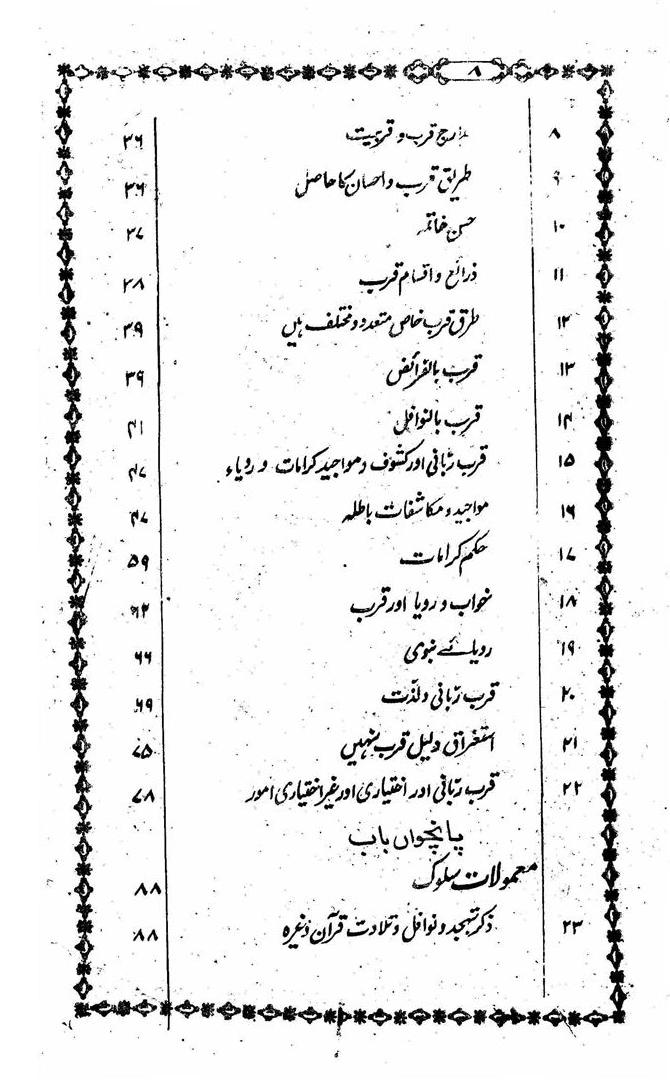 ۸
۸ مدارج قرب و قربیت ۳۶
۹ طریق قرب و احسان کا حاصل ۳۶
۱۰ حسن خاتمہ ۳۷
۱۱ ذرائع و اقسام قرب ۳۸
۱۲ طرق قرب خاص متعدد و مختلف ہیں ۳۹
۱۳ قرب بالفرائض ۳۹
۱۴ قرب بالنوافل ۴۱
۱۵ قرب ربّانی اور کشوف و مواجید کرامات و رویاء ۴۷
۱۶ مواجید و مکاشفات باطلہ ۴۷
۱۷ حکم کرامات ۵۹
۱۸ خواب و رویا اور قرب ۶۲
۱۹ رویائے نبوی ۶۶
۲۰ قرب ربّانی و لذّت ۶۹
۲۱ استغراق دلیل قرب نہیں ۷۵
۲۲ قرب ربّانی اور اختیاری اور غیر اختیاری امور ۷۸
پانچواں باب
معمولات سلوک ۸۸
۲۳ ذکر تہجد و نوافل و تلاوت قرآن وغیرہ ۸۸